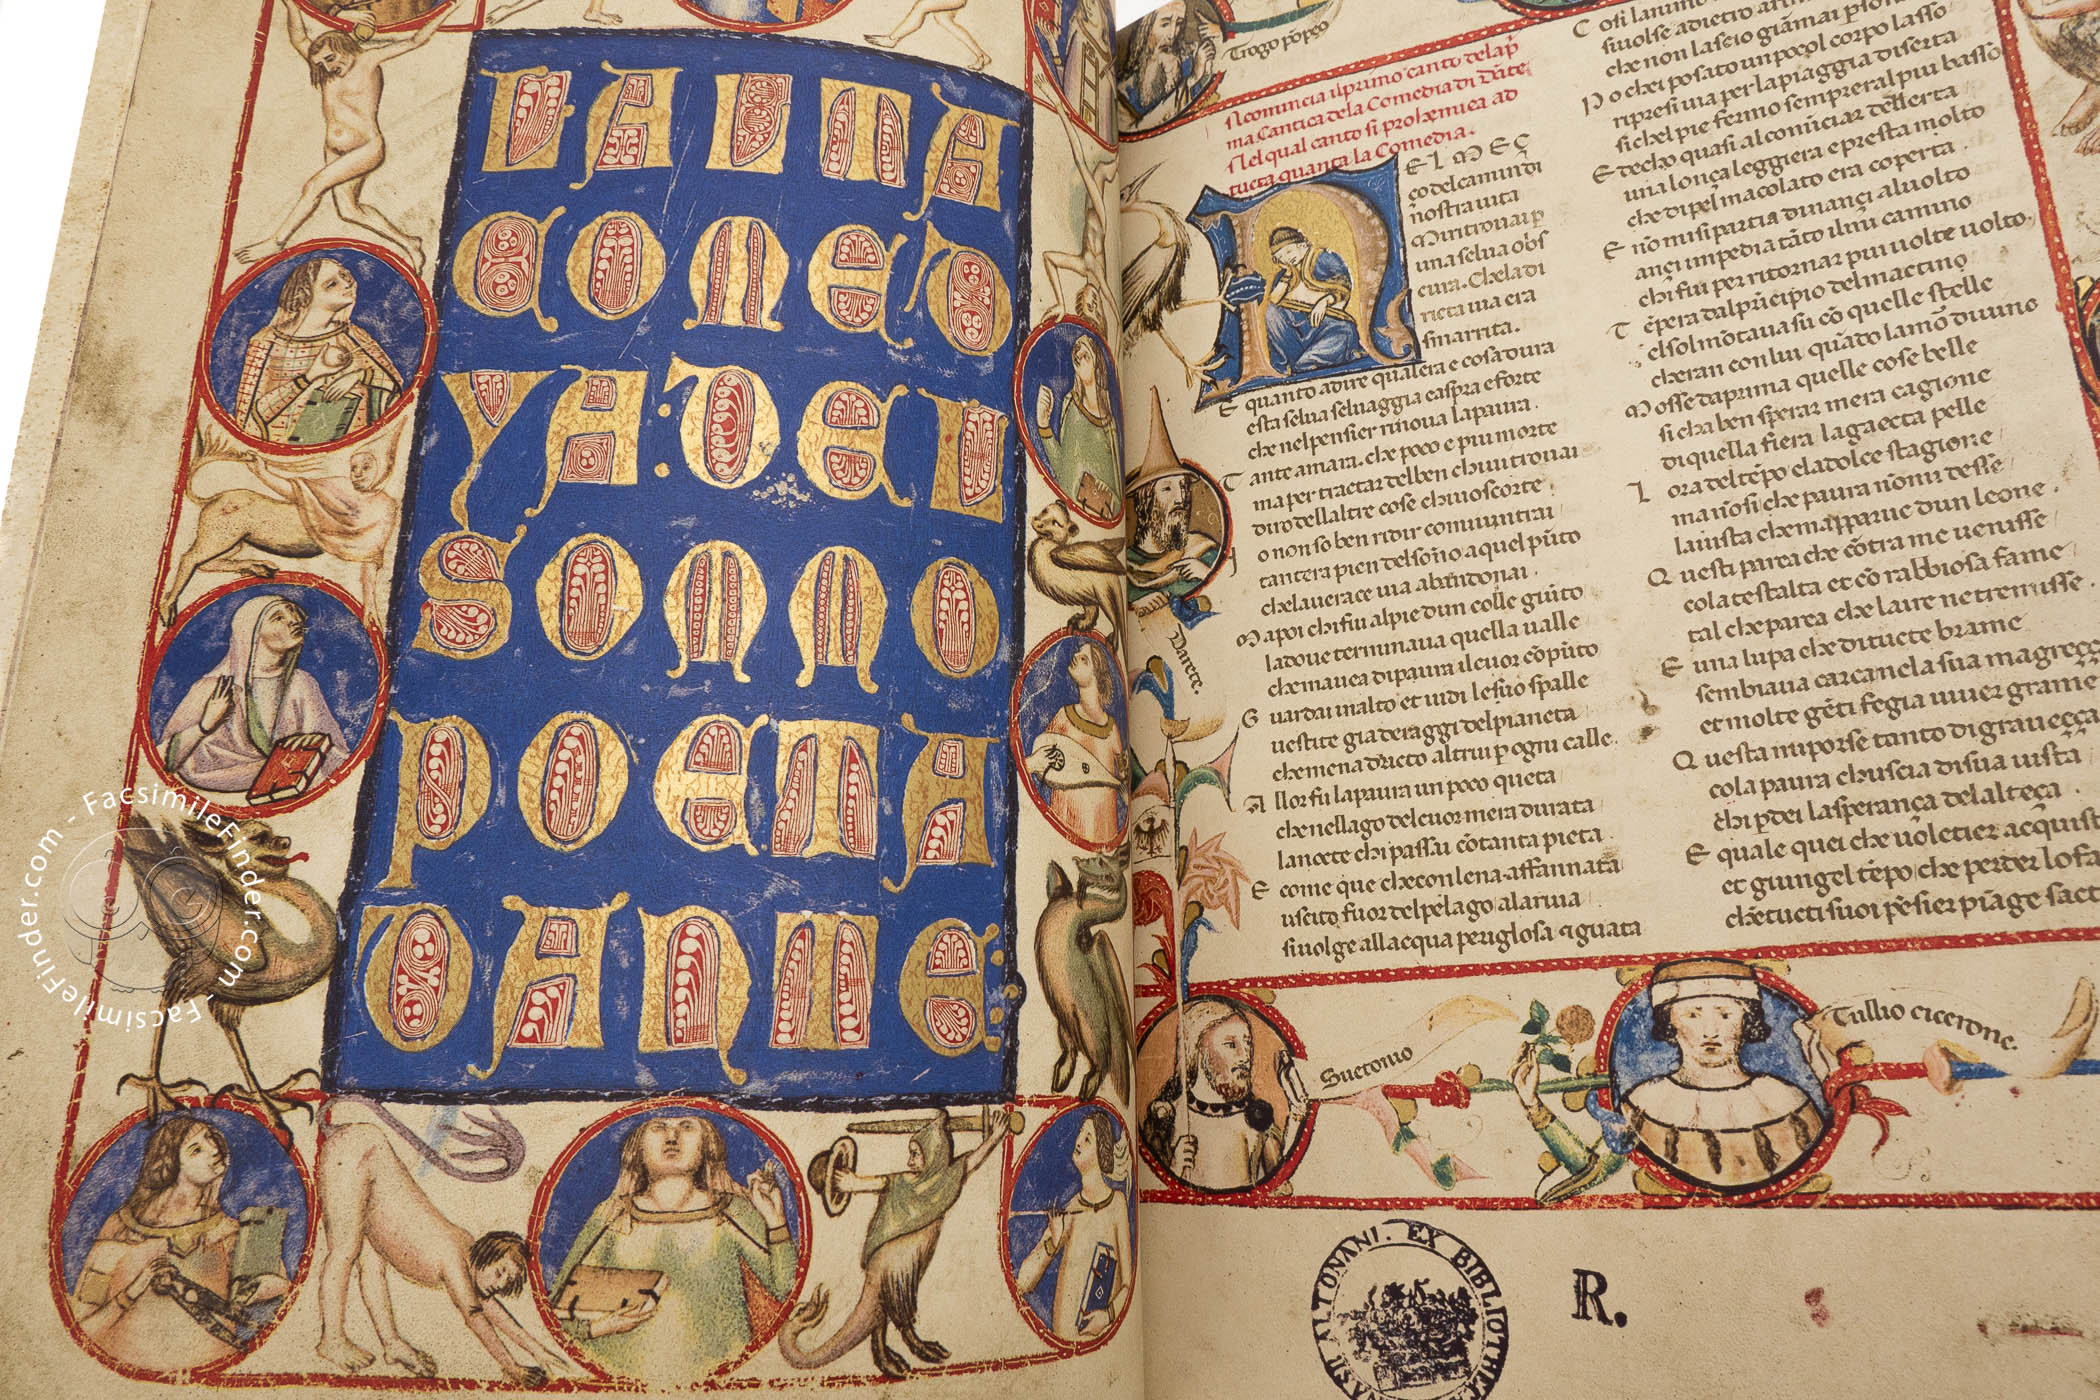 LALTA
COMED
YA: DEL
SOMMO
POETA
DANTE:
Trogo põpeo
jlcomincia ilprimo canto delap̃
ma Cantica de la Comedia di Dãte
Nel qual canto si prohemiça ad
tucta quanta la Comedia.
NEL MEÇ
ço del camin di
nostra uita
Mi ritrouai p̱
una selua obs
cura. Chela di
ricta uia era
smarrita.
E quanto adire qualera e cosa dura
esta selua seluaggia easpra e forte
che nel pensier rinoua la paura.
T ante amara. che poco e piu morte
ma per tractar del ben chiui trouai
diro dellaltre cose chio scorte.
I o non so ben ridir comiuintrai
tantera pien del sõno a quel pũto
che la uerace uia abandonai.
M a poi chi fui alpie dun colle giũto
la doue terminaua quella ualle
che mauea di paura il cuor cõpũto
G uardai inalto et uidi le suo spalle
uestite gia deraggi del pianeta
che mena dricto altrui p̱ ogni calle.
A llor fu la paura un poco queta
che nel lago del cuor mera durata
la nocte chi passai cõ tanta pieta.
E come que che con lena affannata
uscito fuor del pelago a la riua
si uolge allacqua perigliosa & guata
C osi lanimo
si uolse adietro
che non lascio giãmai
P o chei posato un poco l corpo lasso
ripresi uia per la piaggia diserta
si chel pie fermo sempre ral piu basso
E decho quasi al comĩciar dellerta
una lonça leggiera e presta molto
che di pel macolato era coperta.
E nõ mi si partia dinançi al uolto
ançi impedia tãto il mĩ camino
chi fui per ritornar piu uolte uolto.
T ẽpera dal prĩcipio del mactino
el sol mõtaua su cõ quelle stelle
cheran con lui quãdo lamõ diuino
M osse da prima quelle cose belle
si cha ben sperar mera cagione
di quella fiera la gaecta pelle
L ora del tẽpo e la dolce stagione
ma nõ si che paura nõ mi desse
la uista che mapparue dun leone.
Q uesti parea che cõtra me uenisse
co la testalta et cõ rabbiosa fame
tal che parea che laire ne tremisse
E una lupa che di tucte brame
sembiaua carca ne la sua magreçça
et molte gẽti fe gia uiuer grame
Q uesta mi porse tanto di graueçça
co la paura chuscia di sua uista
chi p̱dei la sperança de lalteça.
E quale quei che uoletier acquist
et giungel tẽpo che perder lo fa
che tucti suoi pẽsier piãge
Darete.
Suetonio
Tullio cicerone.
ALTONANI. EX BIBLIOTH
R.
FacsimileFinder.com - FacsimileFinder.com - FacsimileFinder.com